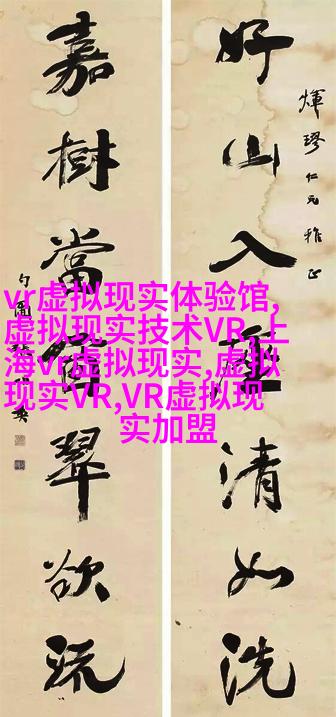 仁兄雅正
好山入清如洗
嘉樹當翠欲流
vr虚拟现实体验馆,
虚拟现实技术VR,上
海vr虚拟现实,虚拟
现实VR,VR虚拟现
实加盟